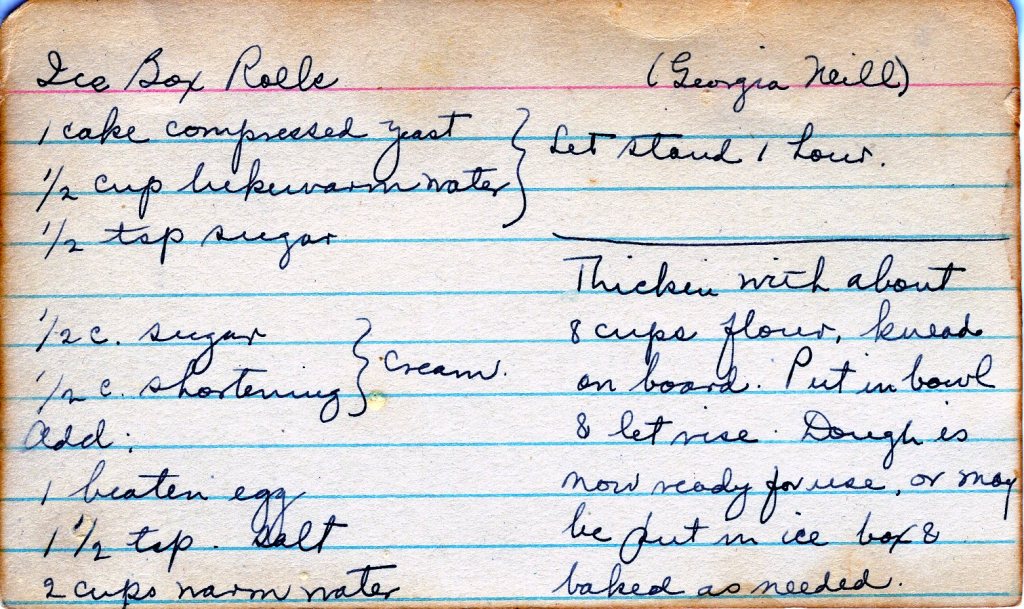 Ice Box Rolls (Georgia Neill)
1 cake compressed yeast
1/2 cup lukewarm water
1/2 tsp sugar
Let stand 1 hour.
1/2 c. sugar
1/2 c. shortening
Cream.
Add:
1 beaten egg
1 1/2 tsp. salt
2 cups warm water
Thicken with about
8 cups flour, knead
on board. Put in bowl
& let rise. Dough is
now ready for use, or may
be put in ice box &
baked as needed.